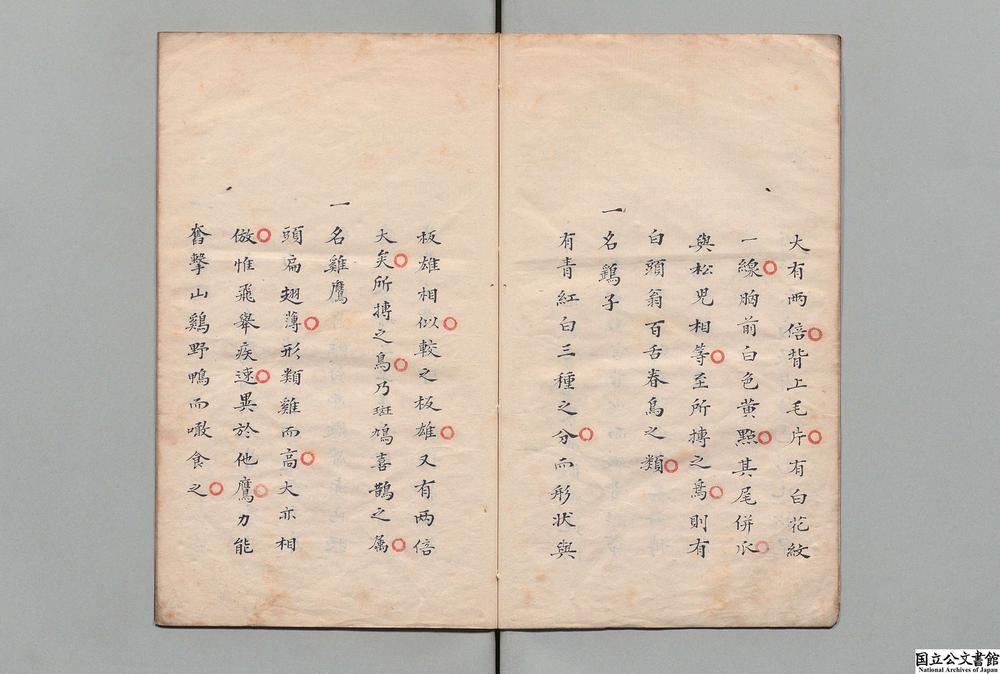 大有兩倍背上毛片有白花紋
一線胸前白色黄點其尾併爪
與松児相等至所搏之鳥則有
白頭翁百舌春鳥之類
一
名鷂子
有青紅白三種之分而形状與
板雄相似較之板雄又有兩倍
大矣所搏之鳥乃斑鳩喜鵲之属
一
名雞鷹
頭扁翅薄形類雞而高大亦相
倣惟飛舉疾速異於他鷹力能
奮撃山鷄野鴨而噉食之
国立公文書館
National Archives of Japan